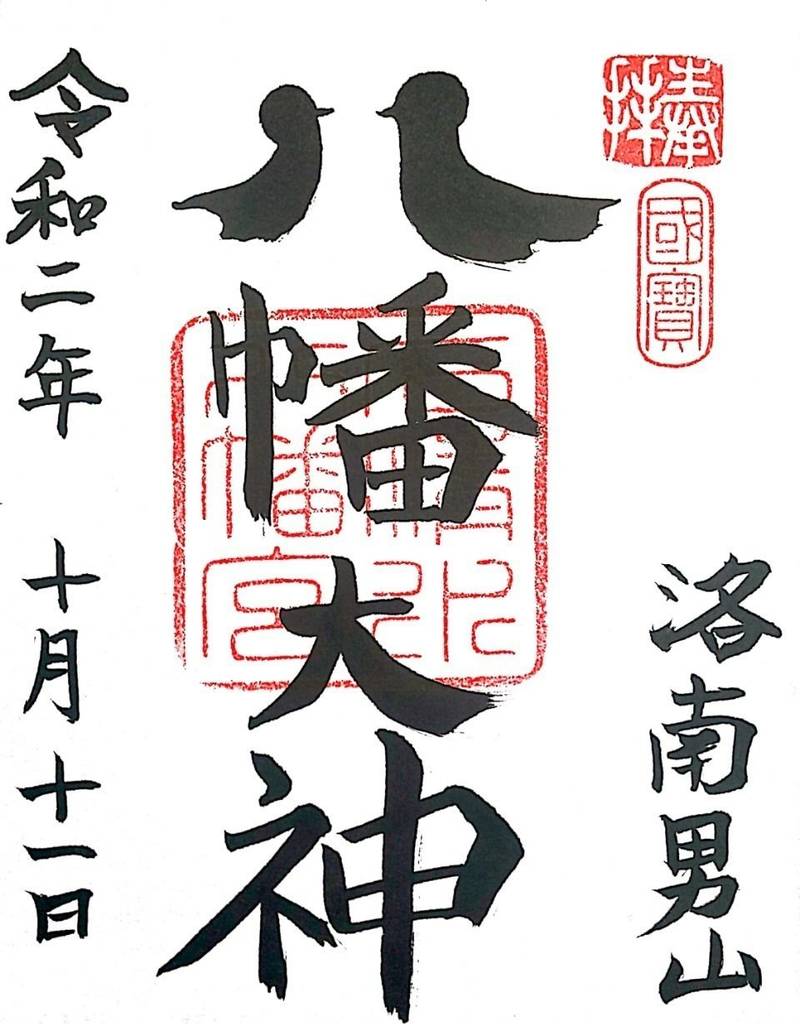 奉拝
國寶
洛南男山
八幡大神
石清水
八幡宮
令和二年 十月十一日